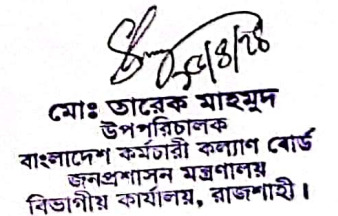 মোঃ তারেক মাহমুদ
উপপরিচালক
বাংলাদেশ কর্মচারী কল্যাণ বোর্ড
জনপ্রশাসন মন্ত্রণালয়
বিভাগীয় কার্যালয়, রাজশাহী।